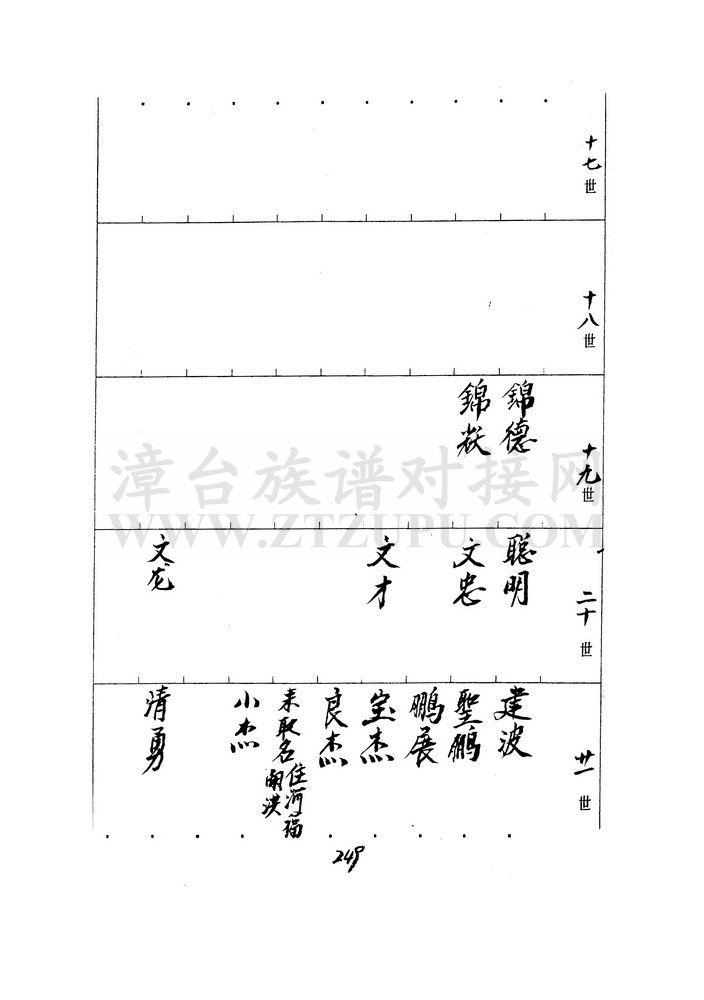 十七世
十八世
十九世
錦德
錦燚
二十世
聪明
文忠
文才
文龙
廿一世
建波
聖鹏
鹏展
宝杰
良杰
未取名
住河福
小杰
清勇
249
漳台族谱对接网
WWW.ZTZUPU.COM